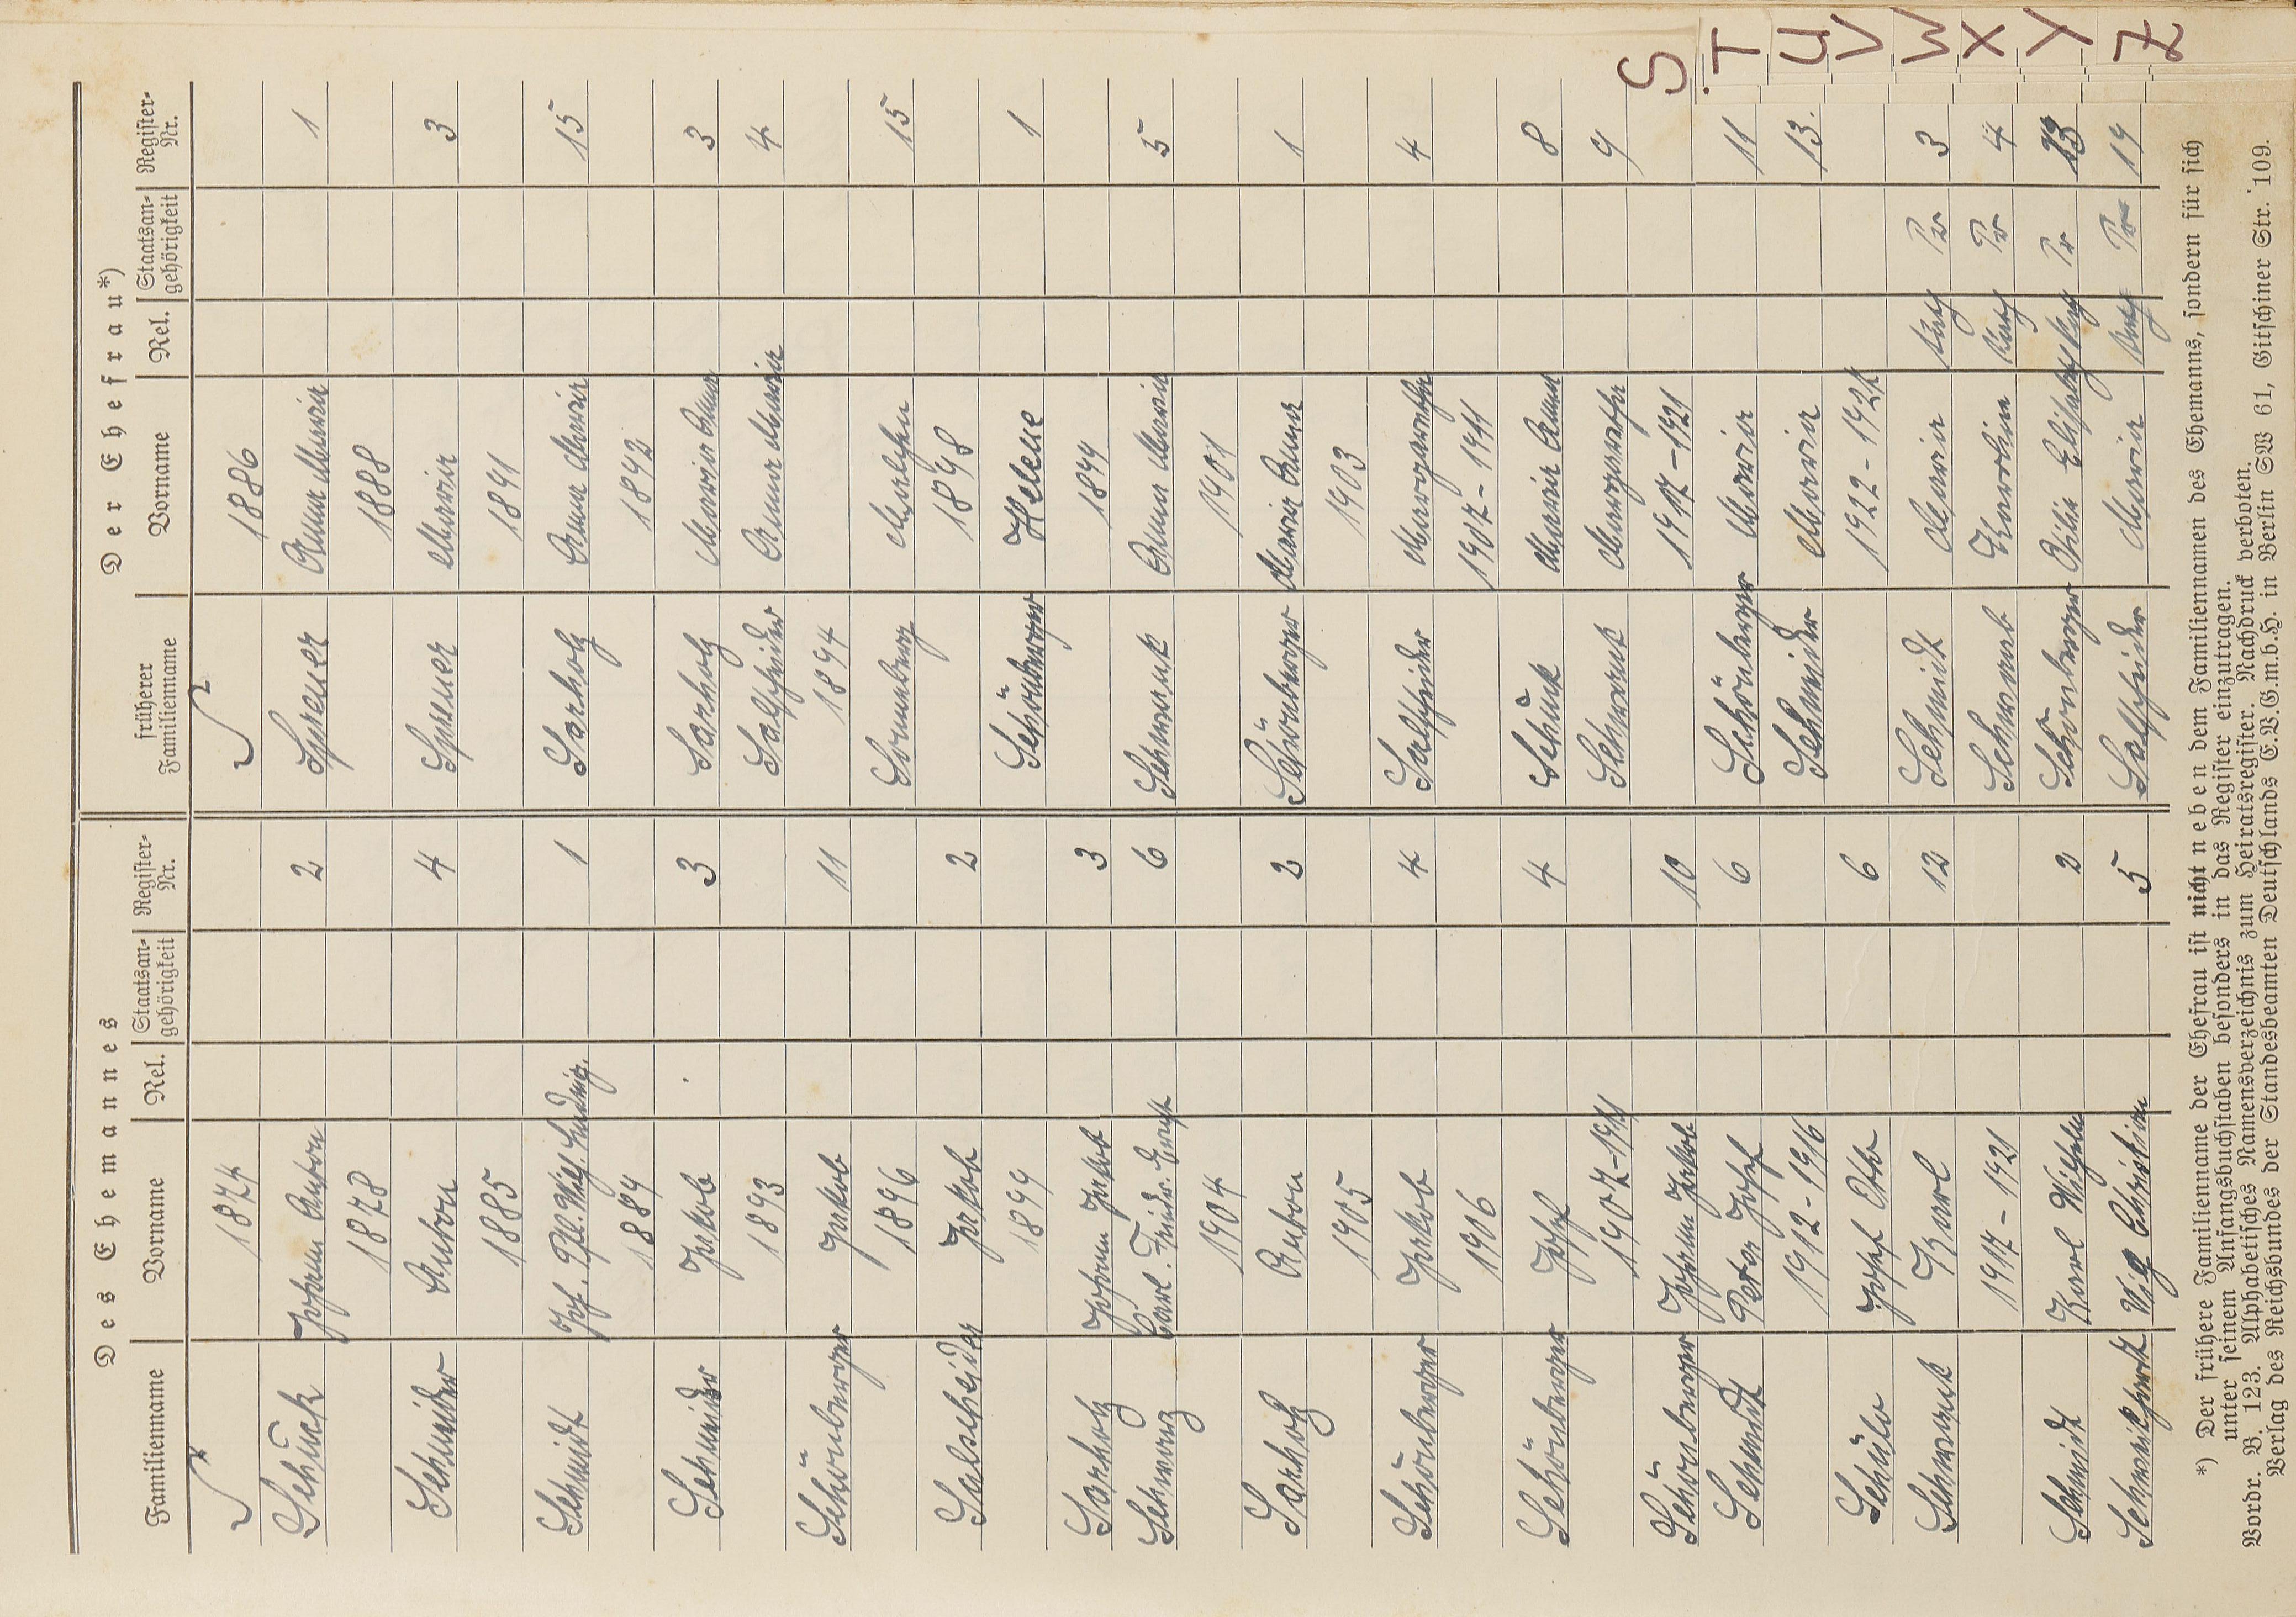 Des Ehemannes Der Ehefrau*)
Familienname Vorname Rel. Staatsan-gehörigkeit Register-Nr. früherer Familienname Vorname Rel. Staatsan-gehörigkeit Register-Nr.
S 1874 S 1886
Schück Johann Anton 2 Spreuer Anna Maria 1
1878 1888
Schneider Anton 4 Spreuer Maria 3
1885 1891
Schmidt Jos. Phil. Wilh. Ludwig 1 Sarholz Anna Maria 15
1889 1892
Schneider Jakob 3 Sarholz Maria Anna 3
1893 Salscheider Anna Maria 4
Schönberger Jakob 11 1894
1896 Sonnenberg 15
Salscheider Jakob 2 1898
1899 Schönberger Helene 1
Sarholz Johann Jakob 3 1899
Schwarz Carl. Friedr. Ernst 6 Schwenk Anna Maria 5
1904 1901
Sarholz Anton 2 Schönberger Maria Anna 1
1905 1903
Schönberger Jakob 4 Salscheider Margaretha 4
1906 1907-1911
Schönberger Josef 4 Schunk Maria Anna 8
1907-1911 Schwank Margaretha 9
Schönberger Johann Jakob 10 1917-1921
Schmidt Peter Josef 6 Schönberger Maria 11
1912-1916 Schneider Maria 13.
Schülo Josef Otto 6 1922-1927
Schwank Karl 12 Schmidt Maria Kath Pr 3
1917-1921 Schwank Karolina Kath Pr 4
Schmidt Karl Wilhelm 2 Schönberger Otilia Elisabeth Kath Pr 13
Christian 5 Salscheider Maria Kath Pr 19
S
T
U
V
W
X
Y
Z
*) Der frühere Familienname der Ehefrau ist nicht neben dem Familiennamen des Ehemanns, sondern für sich
unter seinem Anfangsbuchstaben besonders in das Register einzutragen.
Vordr. B. 123. Alphabetisches Namensverzeichnis zum Heiratsregister. Nachdruck verboten.
Verlag des Reichsbundes der Standesbeamten Deutschlands E.V.G.m.b.H. in Berlin SW 61, Gitschiner Str. 109.